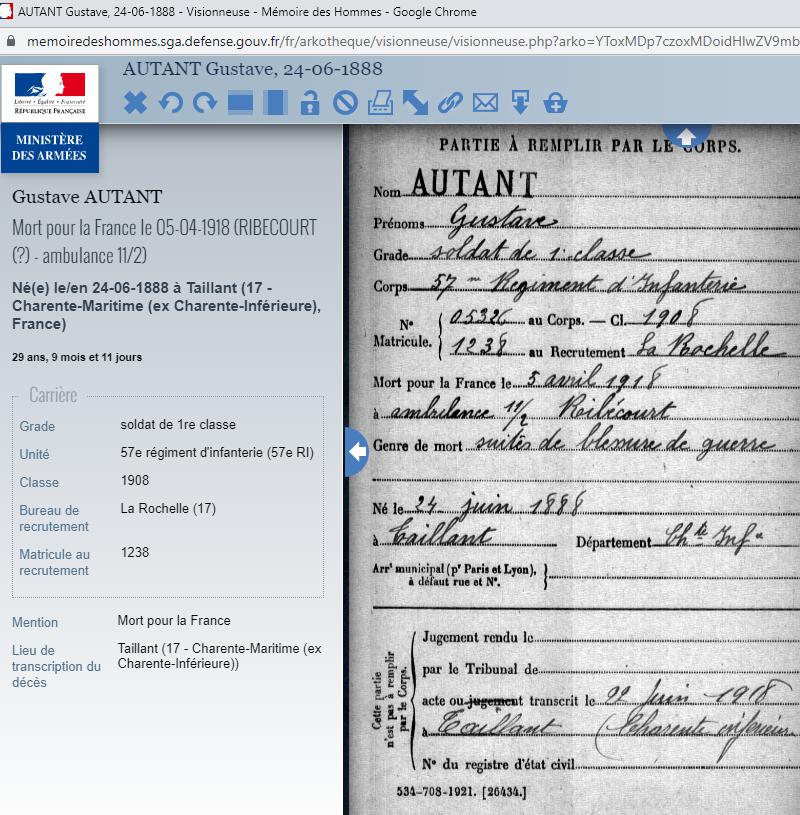 AUTANT Gustave, 24-06-1888 - Visionneuse - Mémoire des Hommes - Google Chrome
memoiredeshommes.sga.defense.gouv.fr/fr/arkotheque/visionneuse/visionneuse.php?arko=YToxMDp7czoxMDoidHlwZV9mb
AUTANT Gustave, 24-06-1888
Liberté • Égalité • Fraternité
RÉPUBLIQUE FRANÇAISE
MINISTÈRE
DES ARMÉES
Gustave AUTANT
Mort pour la France le 05-04-1918 (RIBECOURT
(?) - ambulance 11/2)
Né(e) le/en 24-06-1888 à Taillant (17 -
Charente-Maritime (ex Charente-Inférieure),
France)
29 ans, 9 mois et 11 jours
Carrière
Grade soldat de 1re classe
Unité 57e régiment d'infanterie (57e RI)
Classe 1908
Bureau de
recrutement La Rochelle (17)
Matricule au
recrutement 1238
Mention Mort pour la France
Lieu de
transcription du
décès Taillant (17 - Charente-Maritime (ex
Charente-Inférieure))
PARTIE À REMPLIR PAR LE CORPS.
Nom AUTANT
Prénoms Gustave
Grade soldat de 1e classe
Corps 57me Regiment d'Infanterie
N° Matricule.
05326 au Corps. — Cl. 1908
1238 au Recrutement La Rochelle
Mort pour la France le 5 avril 1918
à ambulance 11/2 Ribécourt
Genre de mort suites de blessure de guerre
Né le 24 juin 1888
à Taillant Département Chte Infre
Arrt municipal (pr Paris et Lyon),
à défaut rue et N°.
Cette partie
n'est pas à remplir
par le Corps.
Jugement rendu le
par le Tribunal de
acte ou jugement transcrit le 22 Juin 1918
à Taillant (Charente inférieure
N° du registre d'état civil
534-708-1921. [26434.]